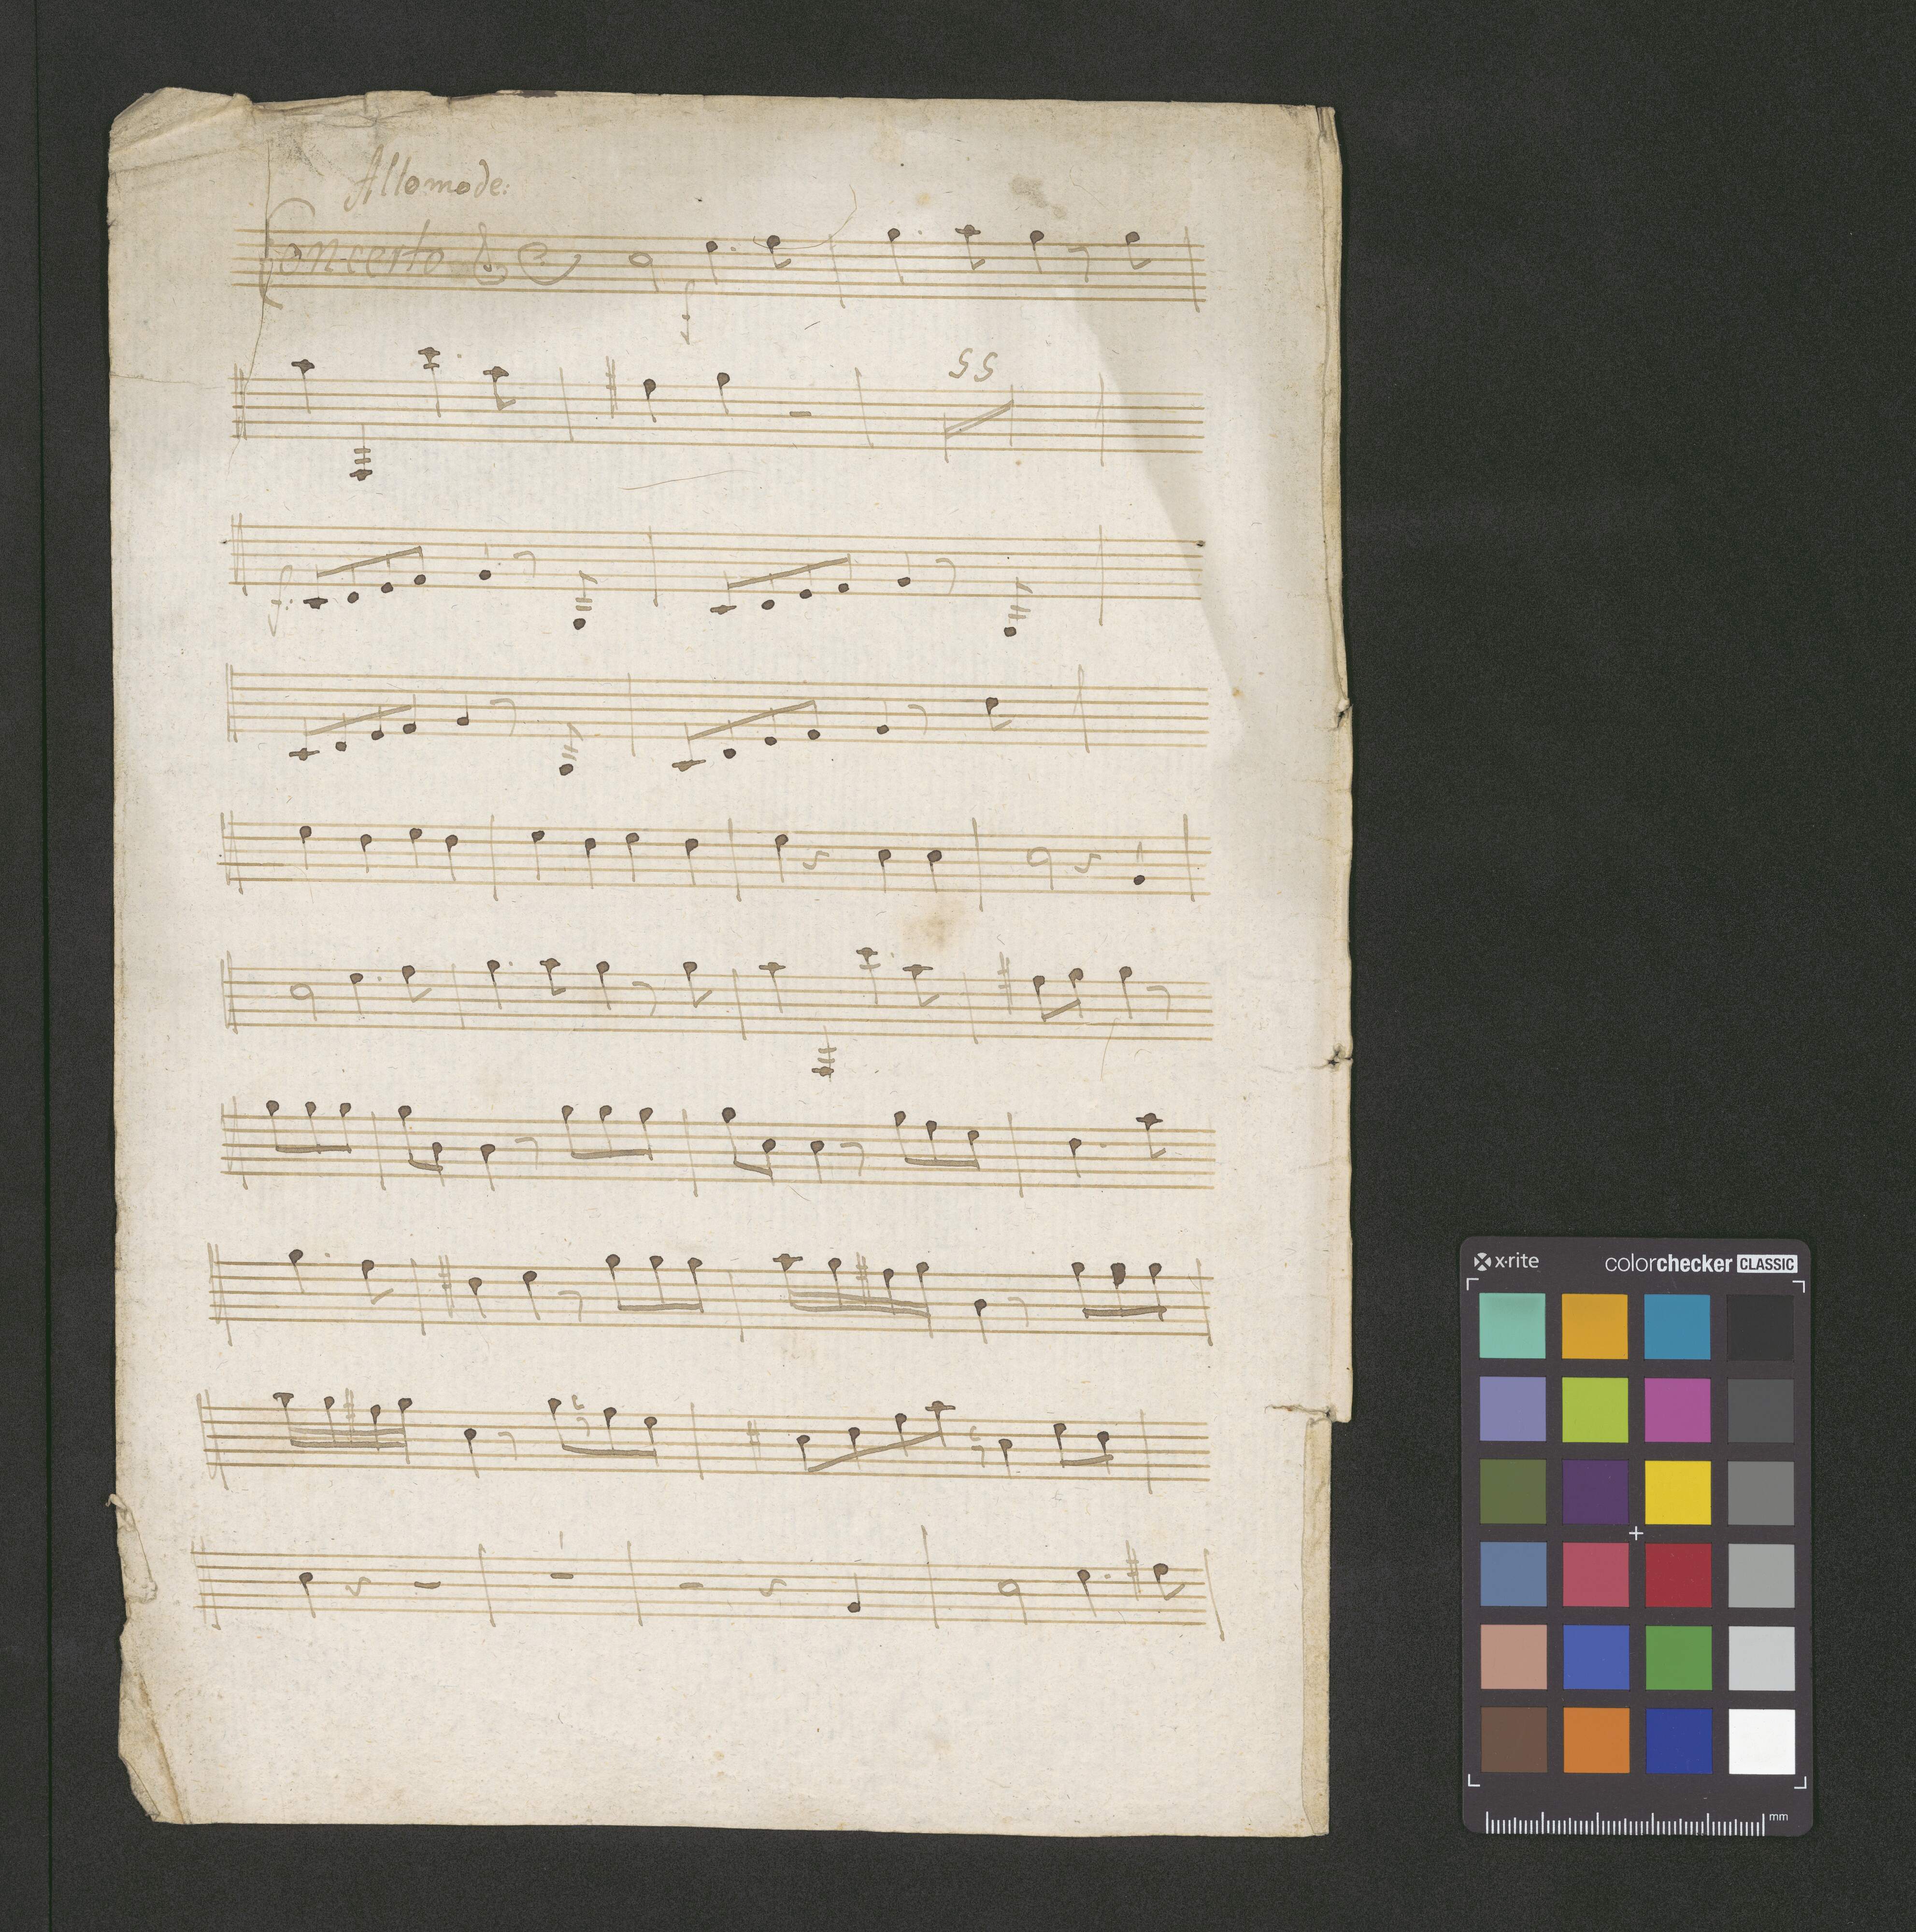 Allomode:
Concerto
f:
SS
f:
x·rite
colorchecker CLASSIC
mm